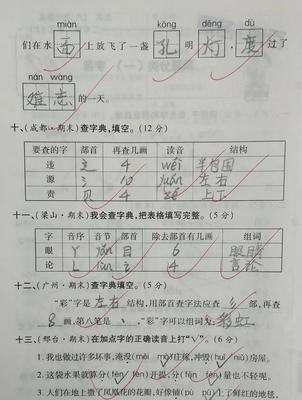 miàn kōng dēng dù
们在水面上放飞了一盏孔明灯,度过了
nán wàng
难忘的一天。
十、(成都·期末)查字典,填空。(12分)
要查的字 部首 再查几画 读音 结构
违 辶 4 wéi 半包围
源 氵 10 yuán 左右
责 贝 4 zé 上下
十一、(梁山·期末)我会查字典,把表格填写完整。(5分)
字 音序 音节 部首 除去部首有几画 组词
眼 Y yǎn 目 6 眼睛
论 L lùn 讠 4 言论
十二、(广州·期末)查字典填空。(5分)
“彩”字是左右结构,用部首查字法应查彡部,再查
8画,第八笔是丶,“彩”字可以组词为彩虹
十三、(邢台·期末)在加点字的正确读音上打“√”。(6分)
1. 我也做过许多坏事,淹没(méi mò)庄稼,冲毁(huǐ niǔ)房屋。
2. 这袋水果就算分(fēn fèn)开提,分(fēn fèn)量也不轻呢。
3. 人们在地上撒了凤凰花的花瓣,好像铺(pū pù)上了鲜红的地毯。